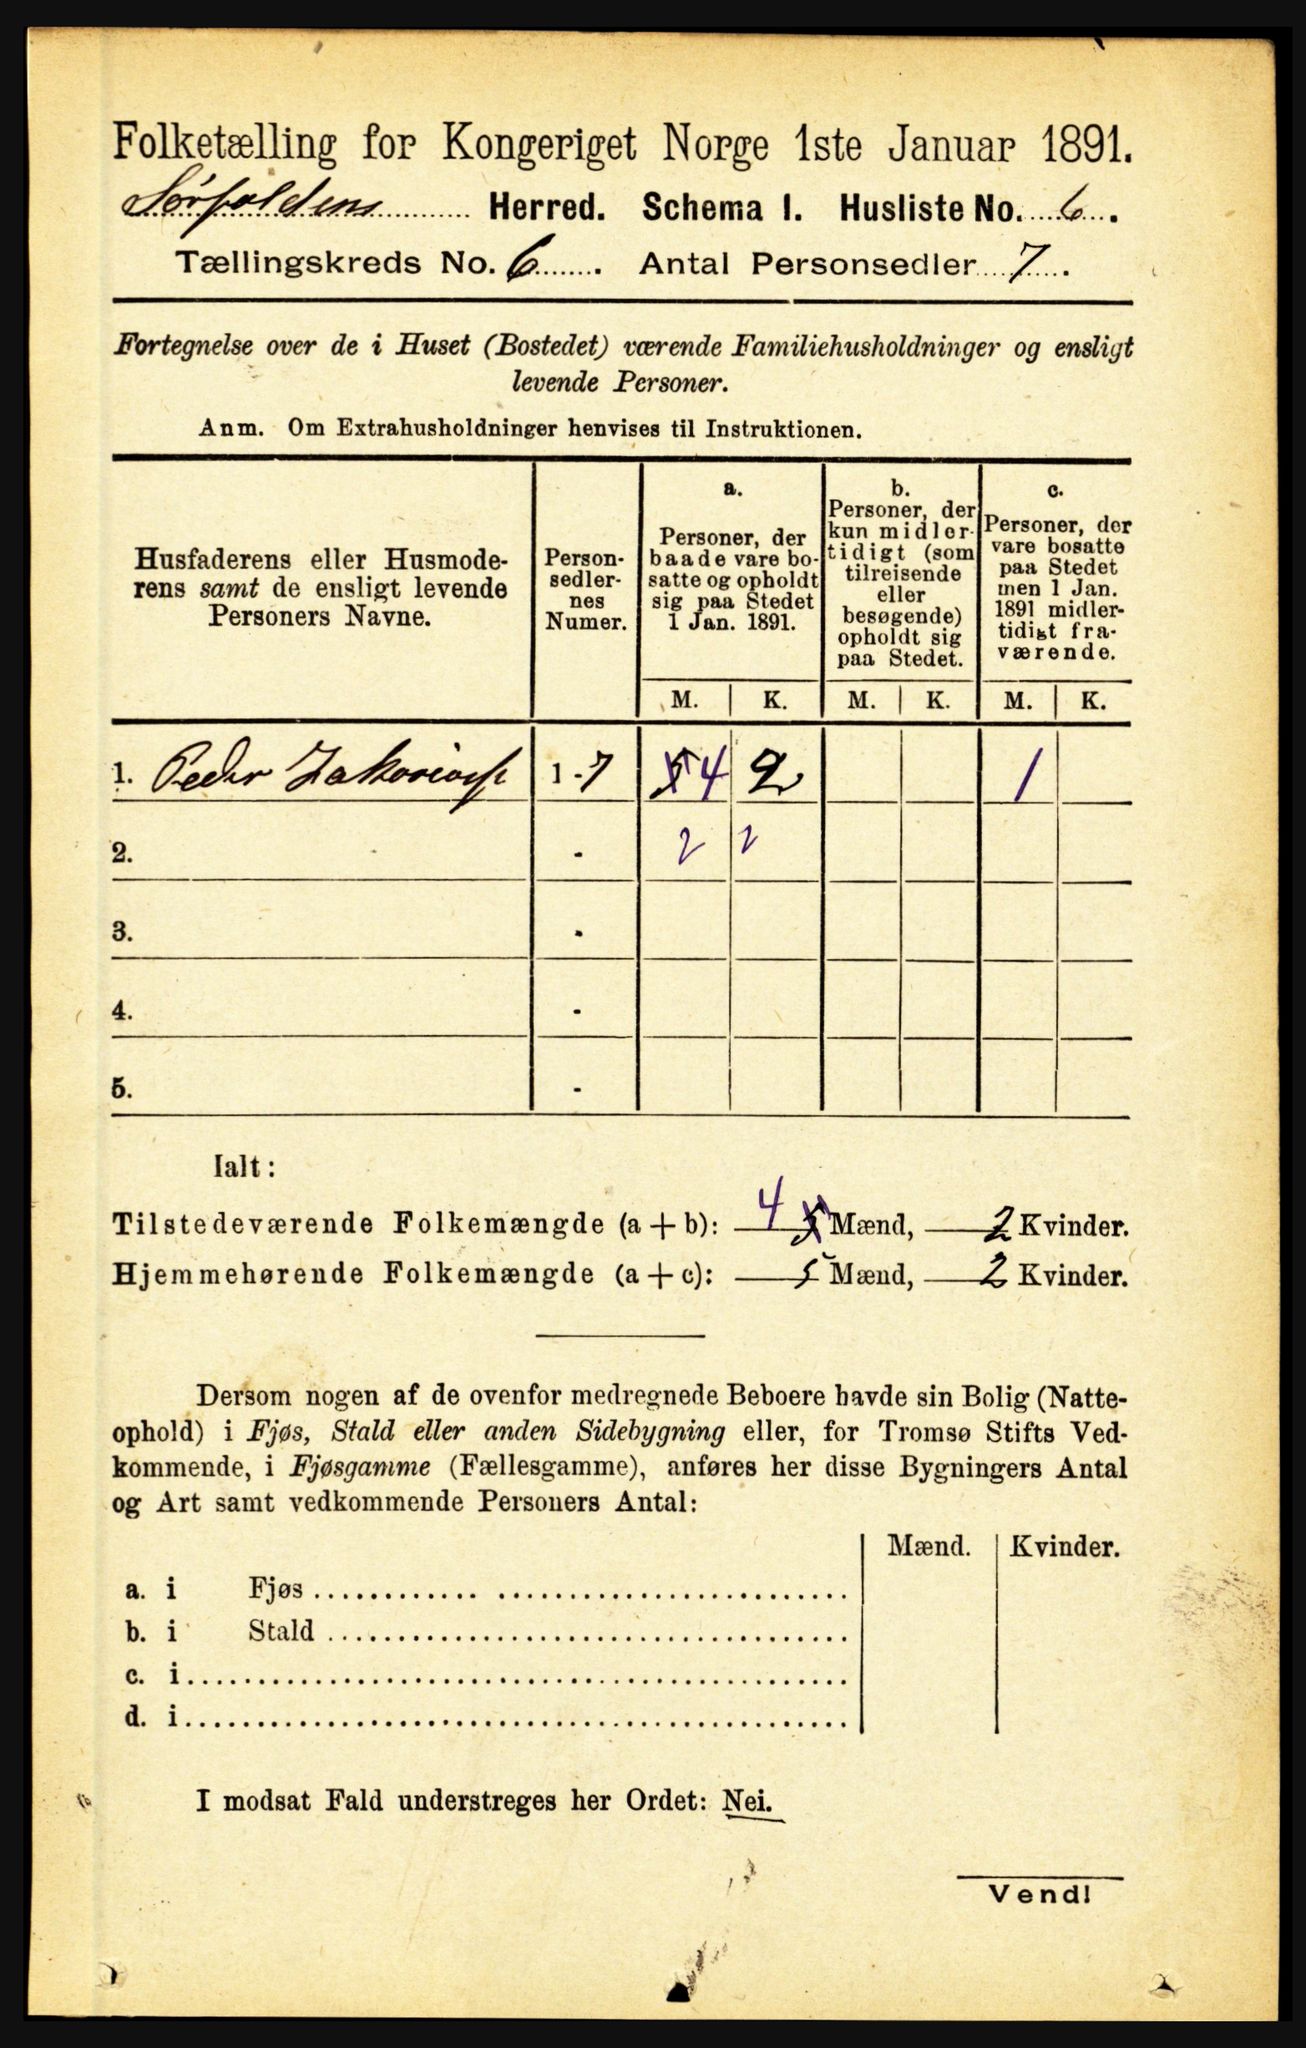 Folketælling for Kongeriget Norge 1ste Januar 1891.
Sørfoldens Herred. Schema I. Husliste No. 6.
Tællingskreds No. 6. Antal Personsedler 7.
Fortegnelse over de i Huset (Bostedet) værende Familiehusholdninger og ensligt
levende Personer.
Anm. Om Extrahusholdninger henvises til Instruktionen.
Husfaderens eller Husmode-
rens samt de ensligt levende
Personers Navne.
Person-
sedler-
nes
Numer.
a.
Personer, der
baade vare bo-
satte og opholdt
sig paa Stedet
1 Jan. 1891.
b.
Personer, der
kun midler-
tidigt (som
tilreisende
eller
besøgende)
opholdt sig
paa Stedet.
c.
Personer, der
vare bosatte
paa Stedet
men 1 Jan.
1891 midler-
tidigt fra-
værende.
M. K. M. K. M. K.
1. Peder Zakarias 1-7 5 4 2 1
2. - 2 2
3. -
4. -
5. -
Ialt:
Tilstedeværende Folkemængde (a + b): 4 5 Mænd, 2 Kvinder.
Hjemmehørende Folkemængde (a + c): 5 Mænd, 2 Kvinder.
Dersom nogen af de ovenfor medregnede Beboere havde sin Bolig (Natte-
ophold) i Fjøs, Stald eller anden Sidebygning eller, for Tromsø Stifts Ved-
kommende, i Fjøsgamme (Fællesgamme), anføres her disse Bygningers Antal
og Art samt vedkommende Personers Antal:
Mænd. Kvinder.
a. i Fjøs
b. i Stald
c. i
d. i
I modsat Fald understreges her Ordet: Nei.
Vend!